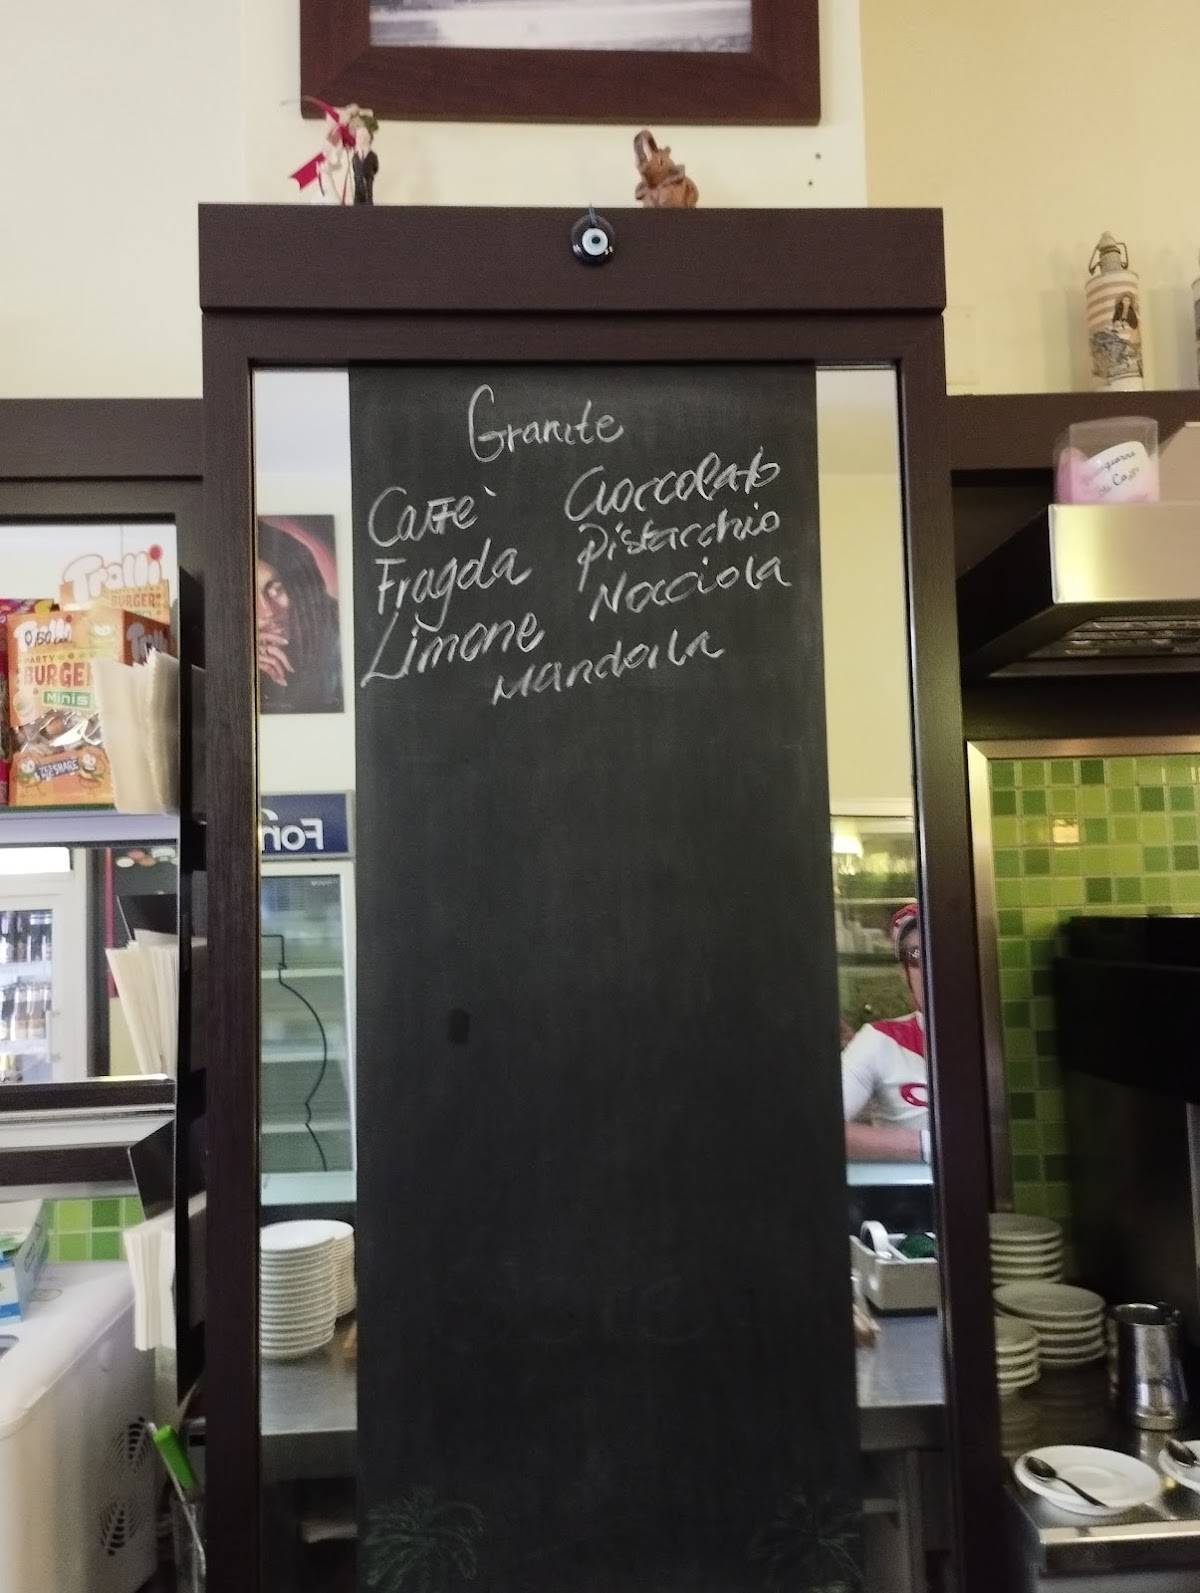 Granite
Caffè
Fragola
Limone
Cioccolato
Pistacchio
Nocciola
Mandorla
Trolli
BURGER
Trolli
0,50
PARTY
BURGER
Minis
For